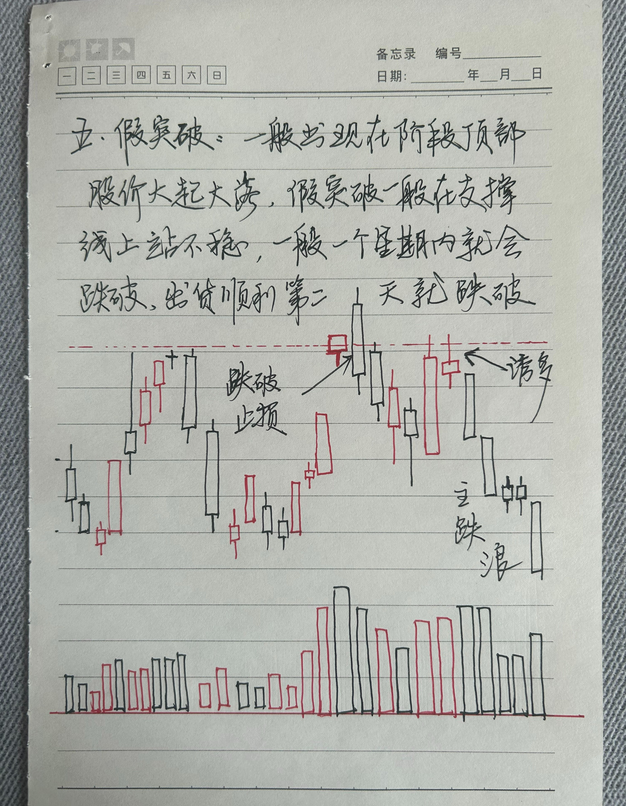 备忘录 编号
一 二 三 四 五 六 日
日期: 年 月 日
五、假突破：一般出现在阶段顶部
股价大起大落，假突破一般在支撑
线上站不稳，一般一个星期内就会
跌破、出货顺利第二 天就跌破
跌破
止损
诱多
主
跌
浪